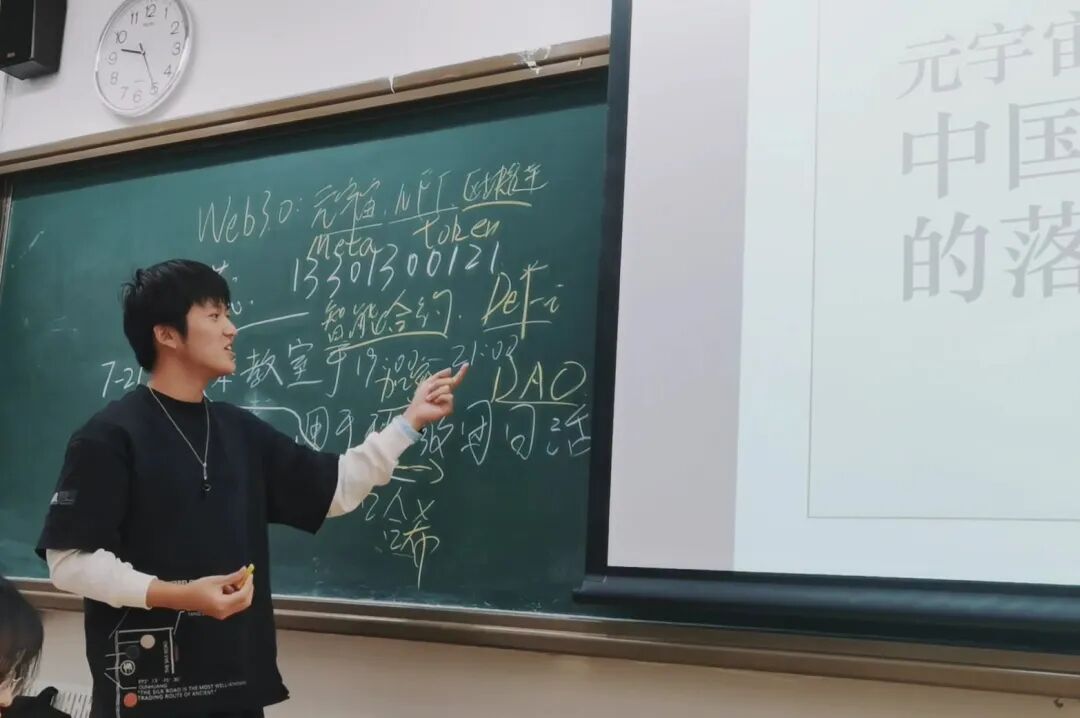 Web3.0: 元宇宙. NFT. 区块链
Meta token
13301300121
智能合约. DeFi
7-21 教室于19:00-21:03
加密 DAO
用于 团日活
哈希
元宇宙
中国
的落
12
1
2
3
4
5
6
7
8
9
10
11
DUNHUANG
"THE SILK ROAD IS THE MOST WELL-KNOWN
TRADING ROUTE OF ANCIENT